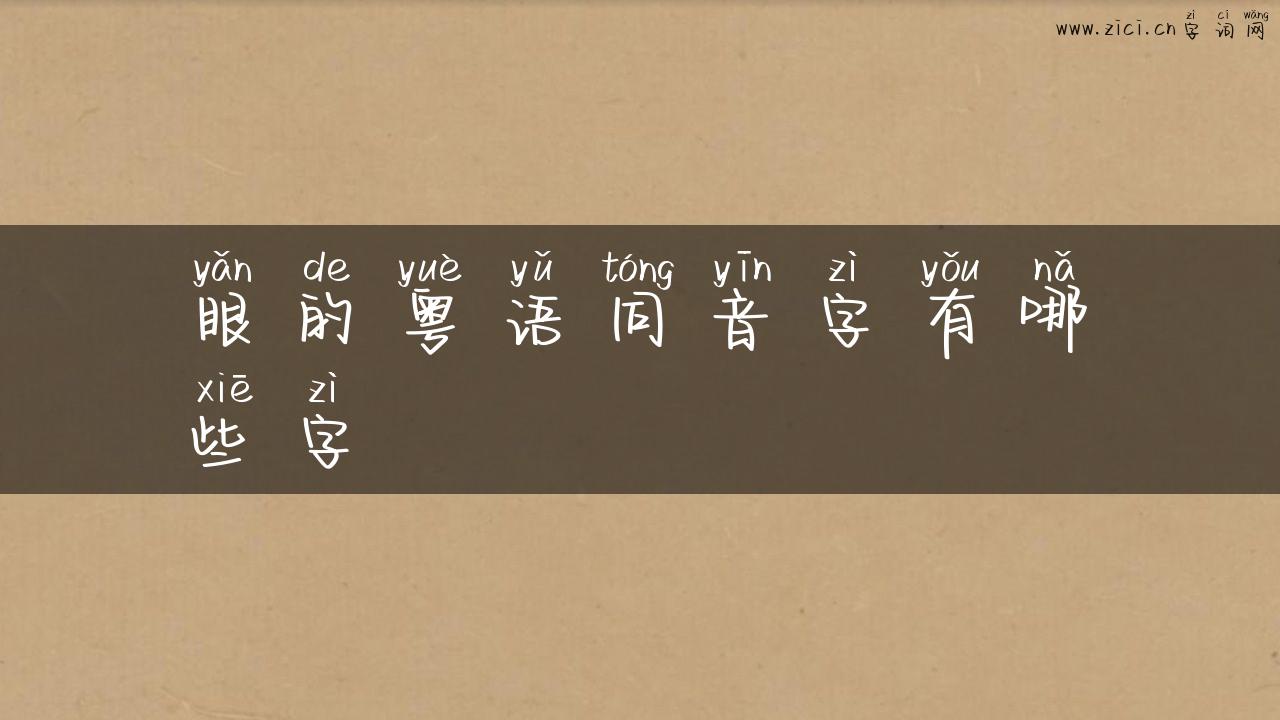 zì cí wǎng
www.zici.cn 字词网
yǎn de yuè yǔ tóng yīn zì yǒu nǎ
眼的粤语同音字有哪
xiē zì
些字